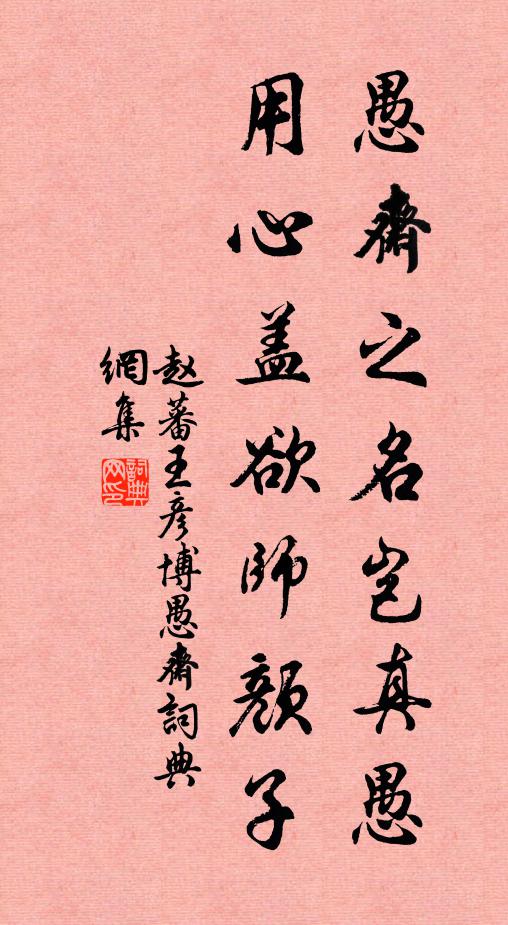 愚齋之名豈真愚
用心蓋欲師顏子
赵蕃王彥博愚齋詞典
網集
詞典网印